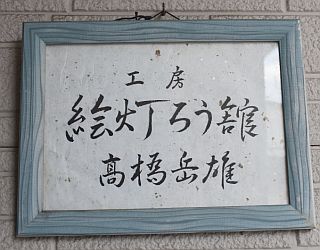 工房
絵灯ろう舘
高橋岳雄